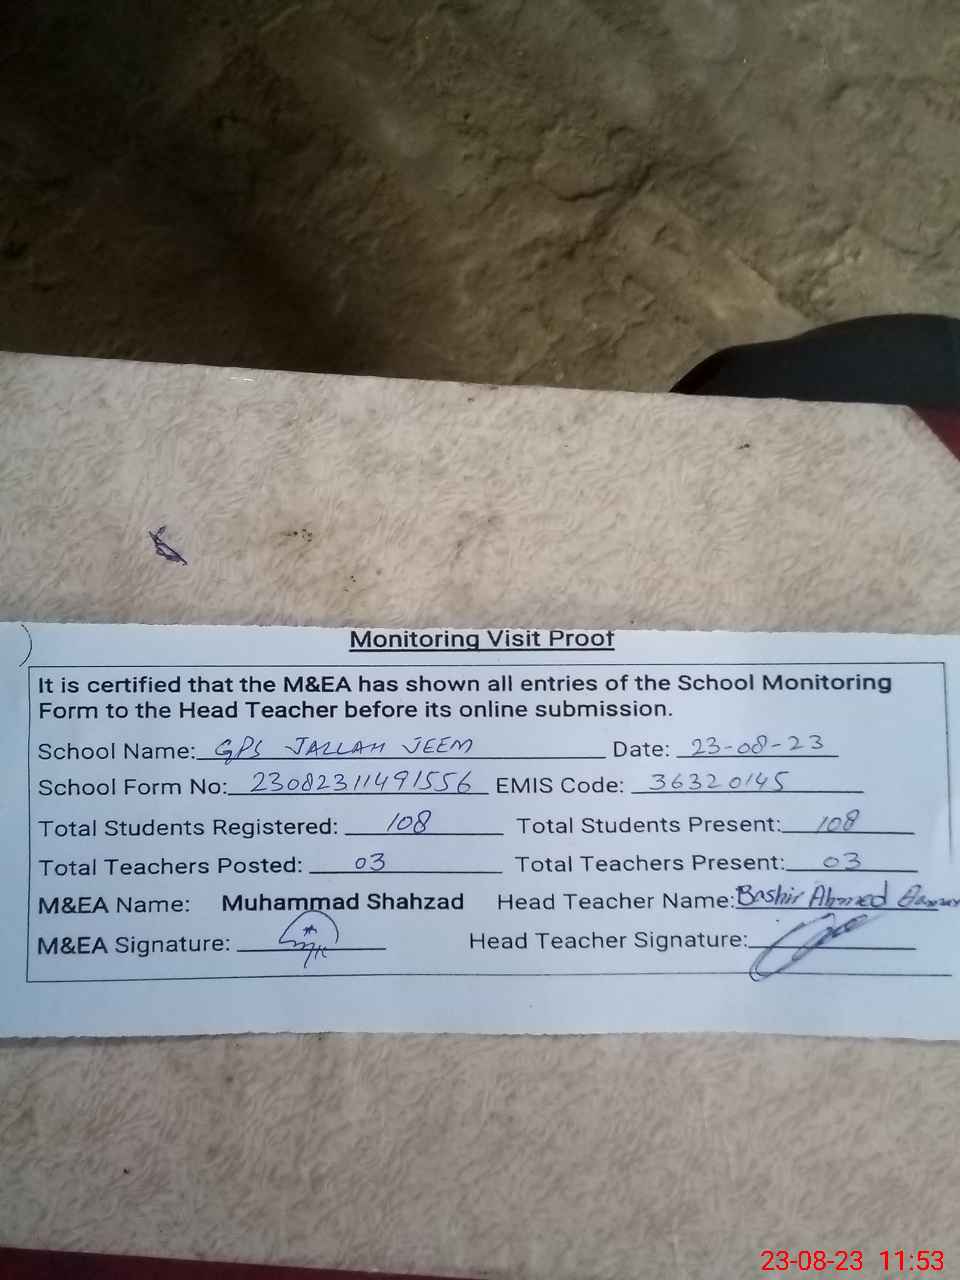 Monitoring Visit Proof
It is certified that the M&EA has shown all entries of the School Monitoring
Form to the Head Teacher before its online submission.
School Name: GPS JALLAH JEEM Date: 23-08-23
School Form No: 23082311491556 EMIS Code: 36320145
Total Students Registered: 108 Total Students Present: 108
Total Teachers Posted: 03 Total Teachers Present: 03
M&EA Name: Muhammad Shahzad Head Teacher Name: Bashir Ahmed
M&EA Signature: Head Teacher Signature:
23-08-23 11:53